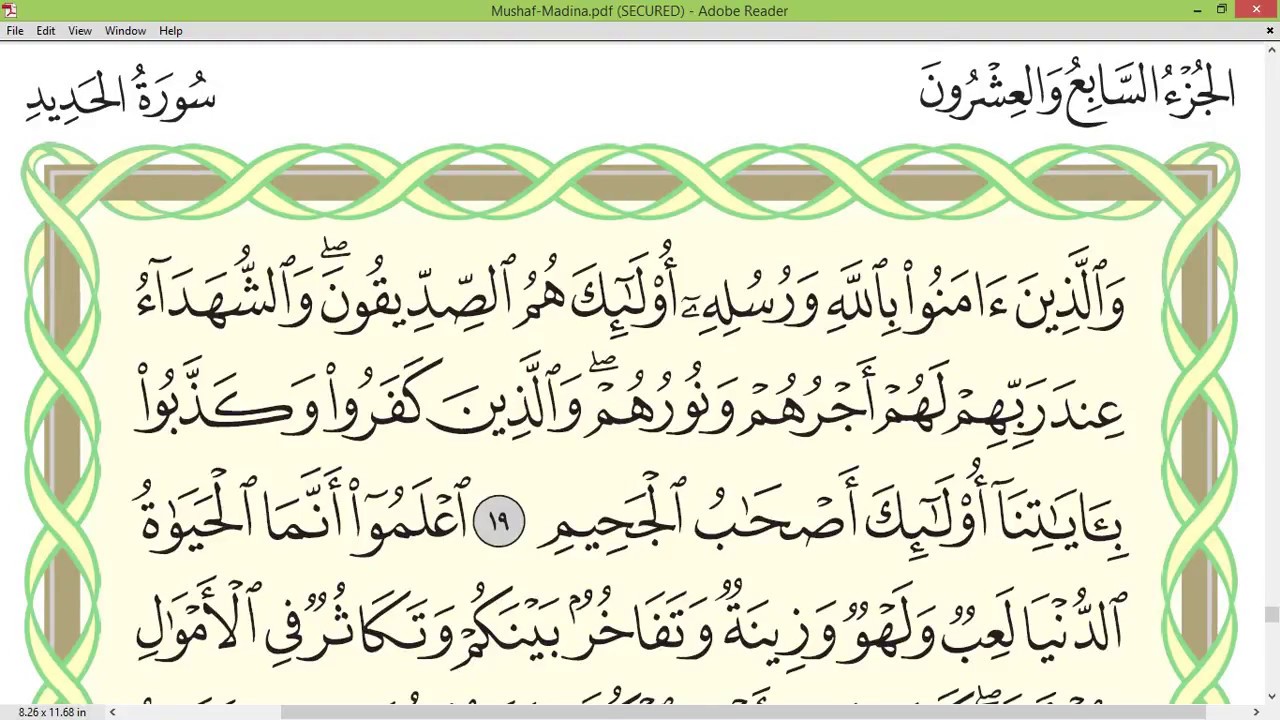 Mushaf-Madina.pdf (SECURED) - Adobe Reader
File Edit View Window Help
الجُزْءُ السَّابِعُ وَالعِشْرُونَ
سُورَةُ الحَدِيدِ
وَٱلَّذِينَ ءَامَنُوا۟ بِٱللَّهِ وَرُسُلِهِۦٓ أُو۟لَـٰٓئِكَ هُمُ ٱلصِّدِّيقُونَ ۖ وَٱلشُّهَدَآءُ
عِندَ رَبِّهِمْ لَهُمْ أَجْرُهُمْ وَنُورُهُمْ ۖ وَٱلَّذِينَ كَفَرُوا۟ وَكَذَّبُوا۟
بِـَٔايَـٰتِنَآ أُو۟لَـٰٓئِكَ أَصْحَـٰبُ ٱلْجَحِيمِ ١٩ ٱعْلَمُوٓا۟ أَنَّمَا ٱلْحَيَوٰةُ
ٱلدُّنْيَا لَعِبٌ وَلَهْوٌ وَزِينَةٌ وَتَفَاخُرٌۢ بَيْنَكُمْ وَتَكَاثُرٌ فِى ٱلْأَمْوَٰلِ
8.26 x 11.68 in